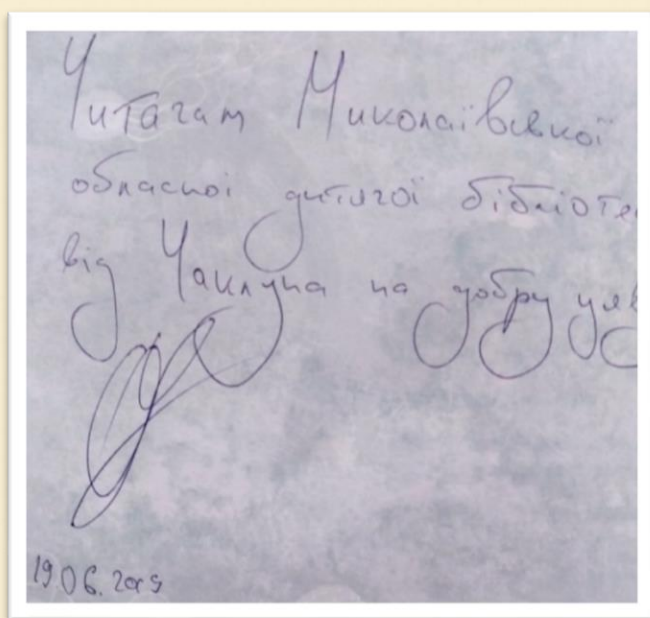 Читачам Миколаївської
обласної дитячої бібліоте
від Чаклуна на добру уяв
19.06.2019